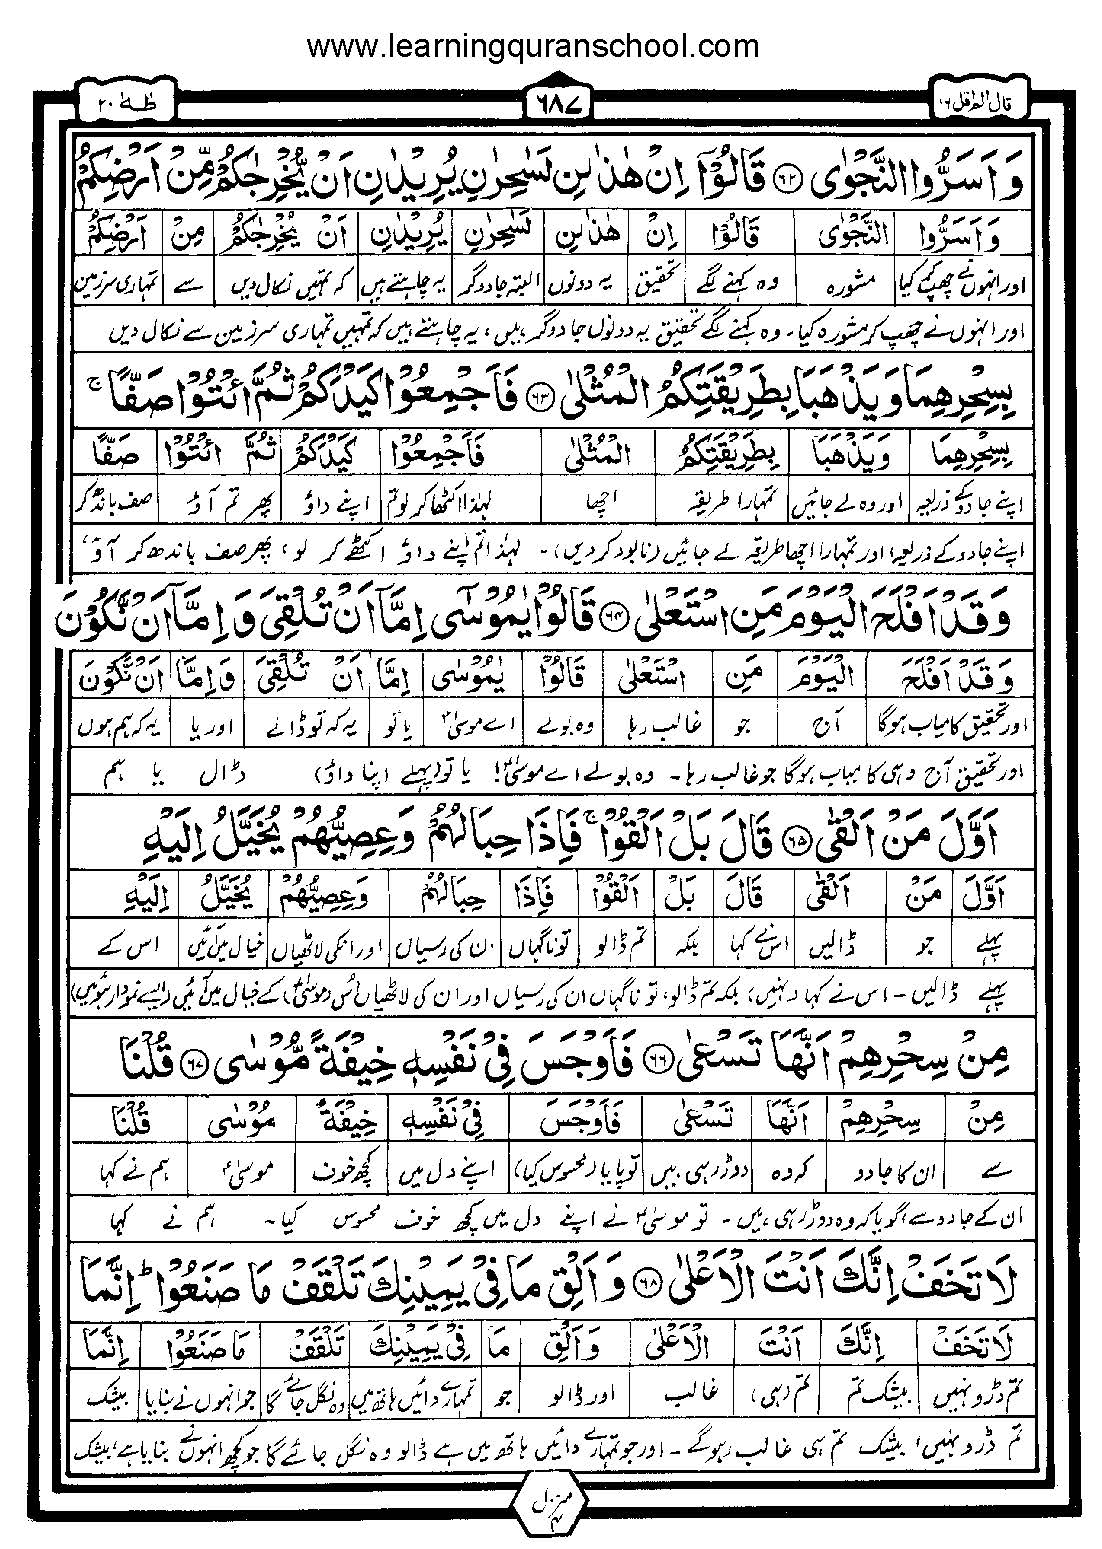 www.learningquranschool.com
قال الم اقل ۱۶
۶۸۷
طٰهٰ ۲۰
وَاَسَرُّوا النَّجْوٰی ﴿۶۲﴾ قَالُوْۤا اِنْ هٰذٰىنِ لَسٰحِرٰنِ یُرِیْدٰنِ اَنْ یُّخْرِجٰكُمْ مِّنْ اَرْضِكُمْ
وَاَسَرُّوا النَّجْوٰی قَالُوْا اِنْ هٰذٰىنِ لَسٰحِرٰنِ یُرِیْدٰنِ اَنْ یُّخْرِجٰكُمْ مِنْ اَرْضِكُمْ
اور انہوں نے چھپ کے کیا مشورہ وہ کہنے لگے تحقیق یہ دونوں البتہ جادوگر یہ چاہتے ہیں کہ تمہیں نکال دیں سے تمہاری سرزمین
اور انہوں نے چھپ کر مشورہ کیا۔ وہ کہنے لگے تحقیق یہ دونوں جادوگر ہیں، یہ چاہتے ہیں کہ تمہیں تمہاری سرزمین سے نکال دیں
بِسِحْرِهِمَا وَیَذْهَبَا بِطَرِیْقَتِكُمُ الْمُثْلٰی ﴿۶۳﴾ فَاَجْمِعُوْا كَیْدَكُمْ ثُمَّ ائْتُوْا صَفًّا ۚ
بِسِحْرِهِمَا وَیَذْهَبَا بِطَرِیْقَتِكُمُ الْمُثْلٰی فَاَجْمِعُوْا كَیْدَكُمْ ثُمَّ ائْتُوْا صَفًّا
اپنے جادو کے ذریعہ اور وہ لے جائیں تمہارا طریقہ اچھا لہٰذا اکٹھا کر لو تم اپنے داؤ پھر تم آؤ صف باندھ کر
اپنے جادو کے ذریعہ، اور تمہارا اچھا طریقہ لے جائیں (نابود کر دیں)۔ لہٰذا تم اپنے داؤ اکٹھے کر لو، پھر صف باندھ کر آؤ،
وَقَدْ اَفْلَحَ الْیَوْمَ مَنِ اسْتَعْلٰی ﴿۶۴﴾ قَالُوْا یٰمُوْسٰۤی اِمَّاۤ اَنْ تُلْقِیَ وَاِمَّاۤ اَنْ نَّكُوْنَ
وَقَدْ اَفْلَحَ الْیَوْمَ مَنِ اسْتَعْلٰی قَالُوْا یٰمُوْسٰی اِمَّا اَنْ تُلْقِیَ وَاِمَّا اَنْ نَّكُوْنَ
اور تحقیق کامیاب ہوگا آج جو غالب رہا وہ بولے اے موسیٰؑ یا تو یہ کہ تو ڈالے اور یا یہ کہ ہم ہوں
اور تحقیق آج وہی کامیاب ہوگا جو غالب رہا۔ وہ بولے اے موسیٰؑ! یا تو (پہلے اپنا داؤ) ڈال یا ہم
اَوَّلَ مَنْ اَلْقٰی ﴿۶۵﴾ قَالَ بَلْ اَلْقُوْا ۚ فَاِذَا حِبَالُهُمْ وَعِصِیُّهُمْ یُخَیَّلُ اِلَیْهِ
اَوَّلَ مَنْ اَلْقٰی قَالَ بَلْ اَلْقُوْا فَاِذَا حِبَالُهُمْ وَعِصِیُّهُمْ یُخَیَّلُ اِلَیْهِ
پہلے جو ڈالیں اس نے کہا بلکہ تم ڈالو تو ناگہاں ان کی رسیاں اور انکی لاٹھیاں خیال میں آئیں اس کے
پہلے ڈالیں۔ اس نے کہا (نہیں) بلکہ تم ڈالو، تو ناگہاں ان کی رسیاں اور ان کی لاٹھیاں اُس (موسیٰؑ) کے خیال میں آئیں (ایسے نمودار ہوئیں)
مِنْ سِحْرِهِمْ اَنَّهَا تَسْعٰی ﴿۶۶﴾ فَاَوْجَسَ فِیْ نَفْسِهٖ خِیْفَةً مُّوْسٰی ﴿۶۷﴾ قُلْنَا
مِنْ سِحْرِهِمْ اَنَّهَا تَسْعٰی فَاَوْجَسَ فِیْ نَفْسِهٖ خِیْفَةً مُوْسٰی قُلْنَا
سے ان کا جادو کہ وہ دوڑ رہی ہیں تو پایا (محسوس کیا) اپنے دل میں کچھ خوف موسیٰؑ ہم نے کہا
ان کے جادو سے گویا کہ وہ دوڑ رہی ہیں۔ تو موسیٰؑ نے اپنے دل میں کچھ خوف محسوس کیا۔ ہم نے کہا
لَا تَخَفْ اِنَّكَ اَنْتَ الْاَعْلٰی ﴿۶۸﴾ وَاَلْقِ مَا فِیْ یَمِیْنِكَ تَلْقَفْ مَا صَنَعُوْا ؕ اِنَّمَا
لَا تَخَفْ اِنَّكَ اَنْتَ الْاَعْلٰی وَاَلْقِ مَا فِیْ یَمِیْنِكَ تَلْقَفْ مَا صَنَعُوْا اِنَّمَا
تم ڈرو نہیں بیشک تم تم (ہی) غالب اور ڈالو جو تمہارے دائیں ہاتھ میں وہ نگل جائے گا جو انہوں نے بنایا بیشک
تم ڈرو نہیں، بیشک تم ہی غالب رہو گے۔ اور جو تمہارے دائیں ہاتھ میں ہے ڈالو وہ نگل جائے گا جو کچھ انہوں نے بنایا ہے، بیشک
منزل ۴